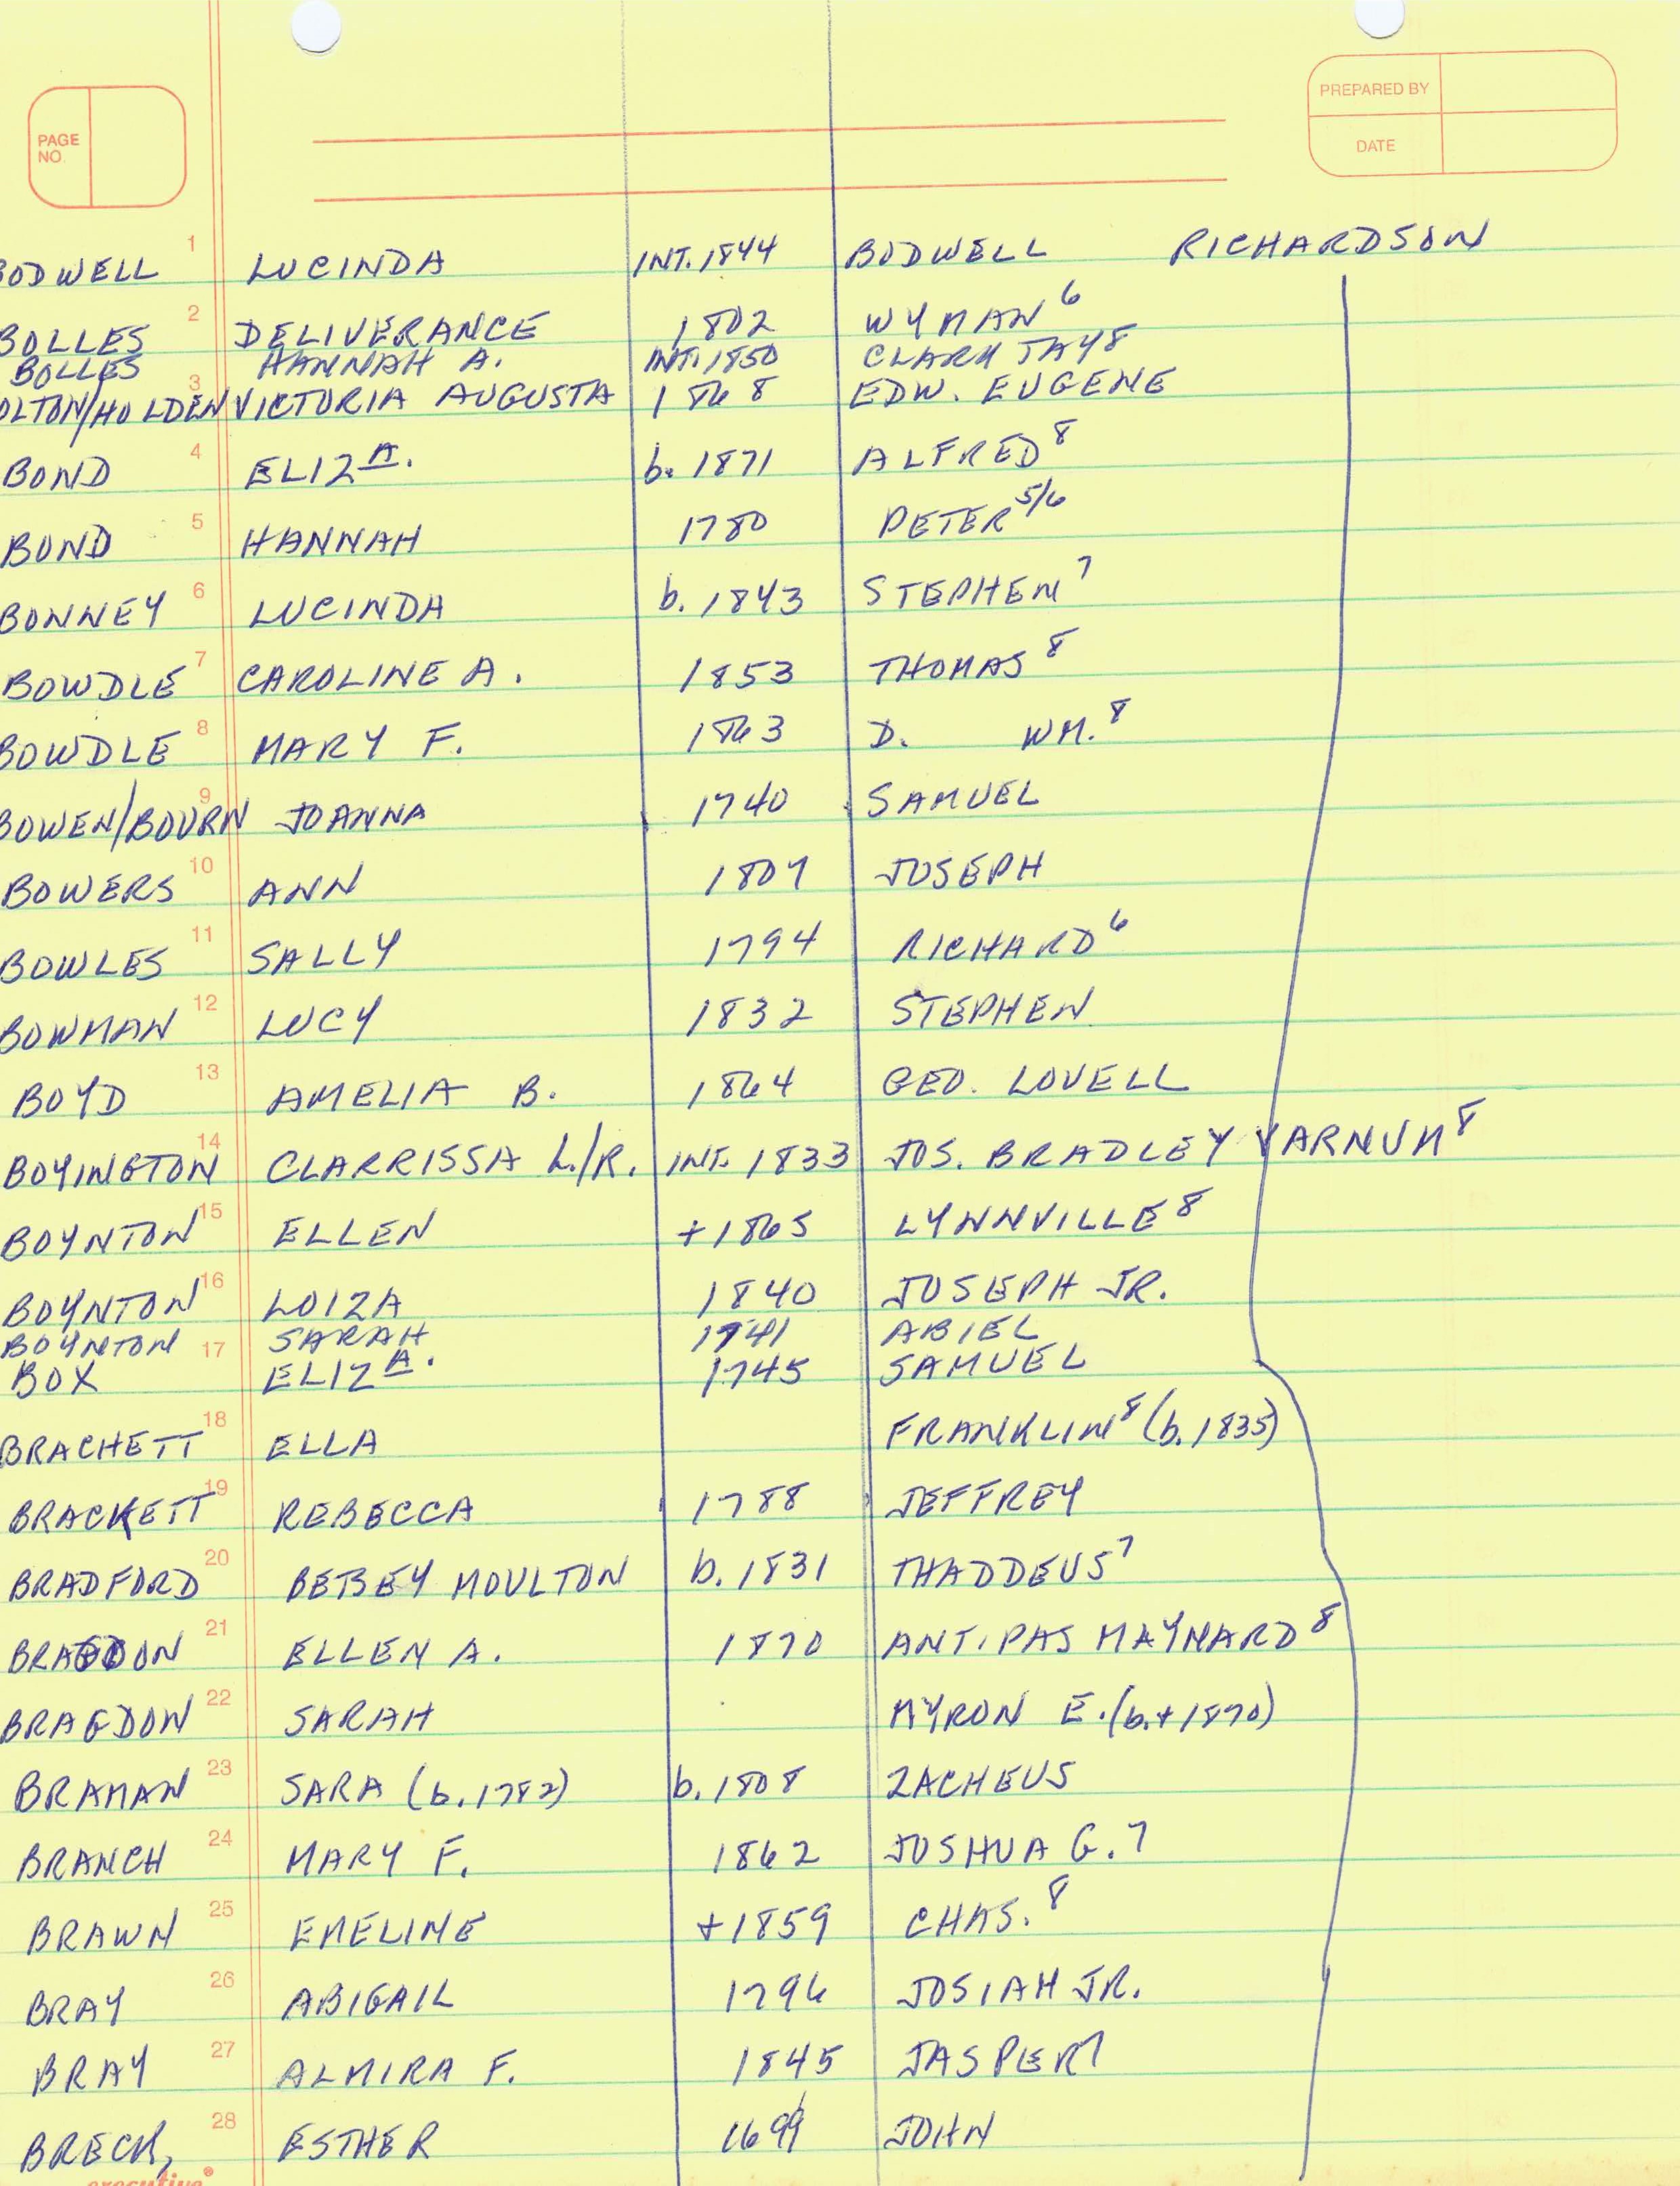 PAGE NO.
PREPARED BY
DATE
1 BODWELL LUCINDA INT. 1844 BODWELL RICHARDSON
2 BOLLES DELIVERANCE 1802 WYMAN 6
BOLLES HANNAH A. INT. 1850 CLARK JAY 8
3 OLTON/HOLDEN VICTORIA AUGUSTA 1868 EDW. EUGENE
4 BOND ELIZ A. b. 1871 ALFRED 8
5 BOND HANNAH 1780 PETER 5/6
6 BONNEY LUCINDA b. 1843 STEPHEN 7
7 BOWDLE CAROLINE A. 1853 THOMAS 8
8 BOWDLE MARY F. 1863 D. WM. 8
9 BOWEN/BOURN JOANNA 1740 SAMUEL
10 BOWERS ANN 1807 JOSEPH
11 BOWLES SALLY 1794 RICHARD 6
12 BOWMAN LUCY 1832 STEPHEN
13 BOYD AMELIA B. 1864 GEO. LOVELL
14 BOYINGTON CLARRISSA L./R. INT. 1833 JOS. BRADLEY VARNUM 8
15 BOYNTON ELLEN +1865 LYNNVILLE 8
16 BOYNTON LOIZA 1840 JOSEPH JR.
BOYNTON SARAH 1741 ABIEL
17 BOX ELIZ A. 1745 SAMUEL
18 BRACHETT ELLA FRANKLIN 8 (b. 1835)
19 BRACKETT REBECCA 1788 JEFFREY
20 BRADFORD BETSEY MOULTON b. 1831 THADDEUS 7
21 BRAGDON ELLEN A. 1870 ANTIPAS MAYNARD 8
22 BRAGDON SARAH MYRON E. (b. + 1870)
23 BRAMAN SARA (b. 1782) b. 1808 ZACHEUS
24 BRANCH MARY F. 1862 JOSHUA G. 7
25 BRAWN EMELINE +1859 CHAS. 8
26 BRAY ABIGAIL 1796 JOSIAH JR.
27 BRAY ALMIRA F. 1845 JASPER 7
28 BRECK, ESTHER 1699 JOHN
executive®